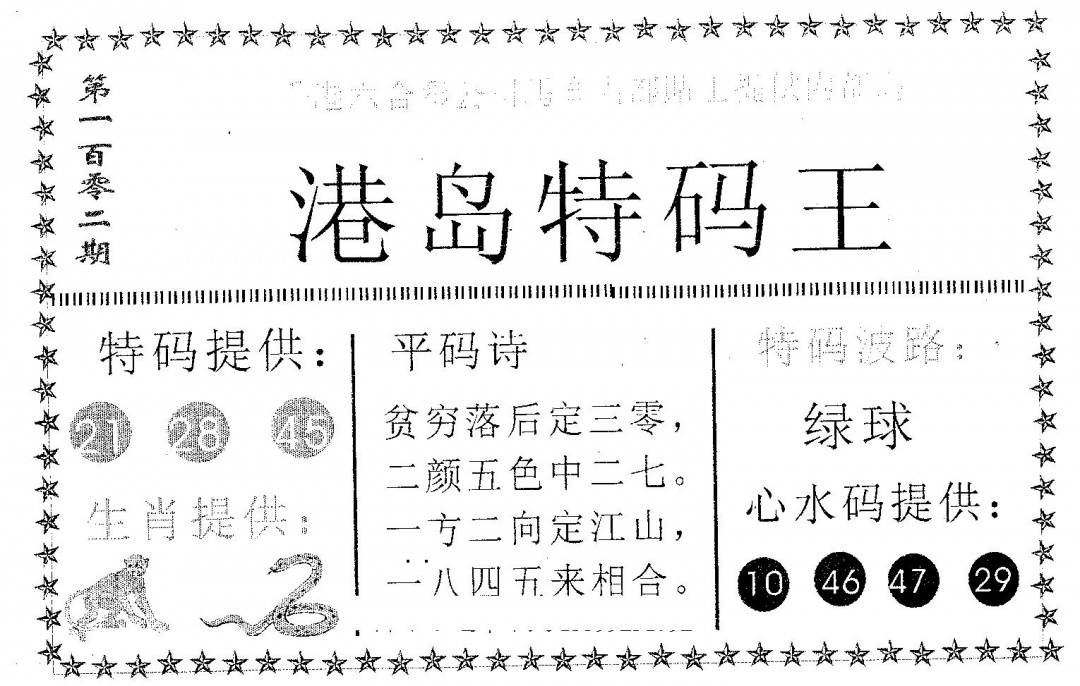 第一百零二期
港岛特码王
特码提供：
21 28 45
生肖提供：
平码诗
贫穷落后定三零，
二颜五色中二七。
一方二向定江山，
一八四五来相合。
特码波路：
绿球
心水码提供：
10 46 47 29